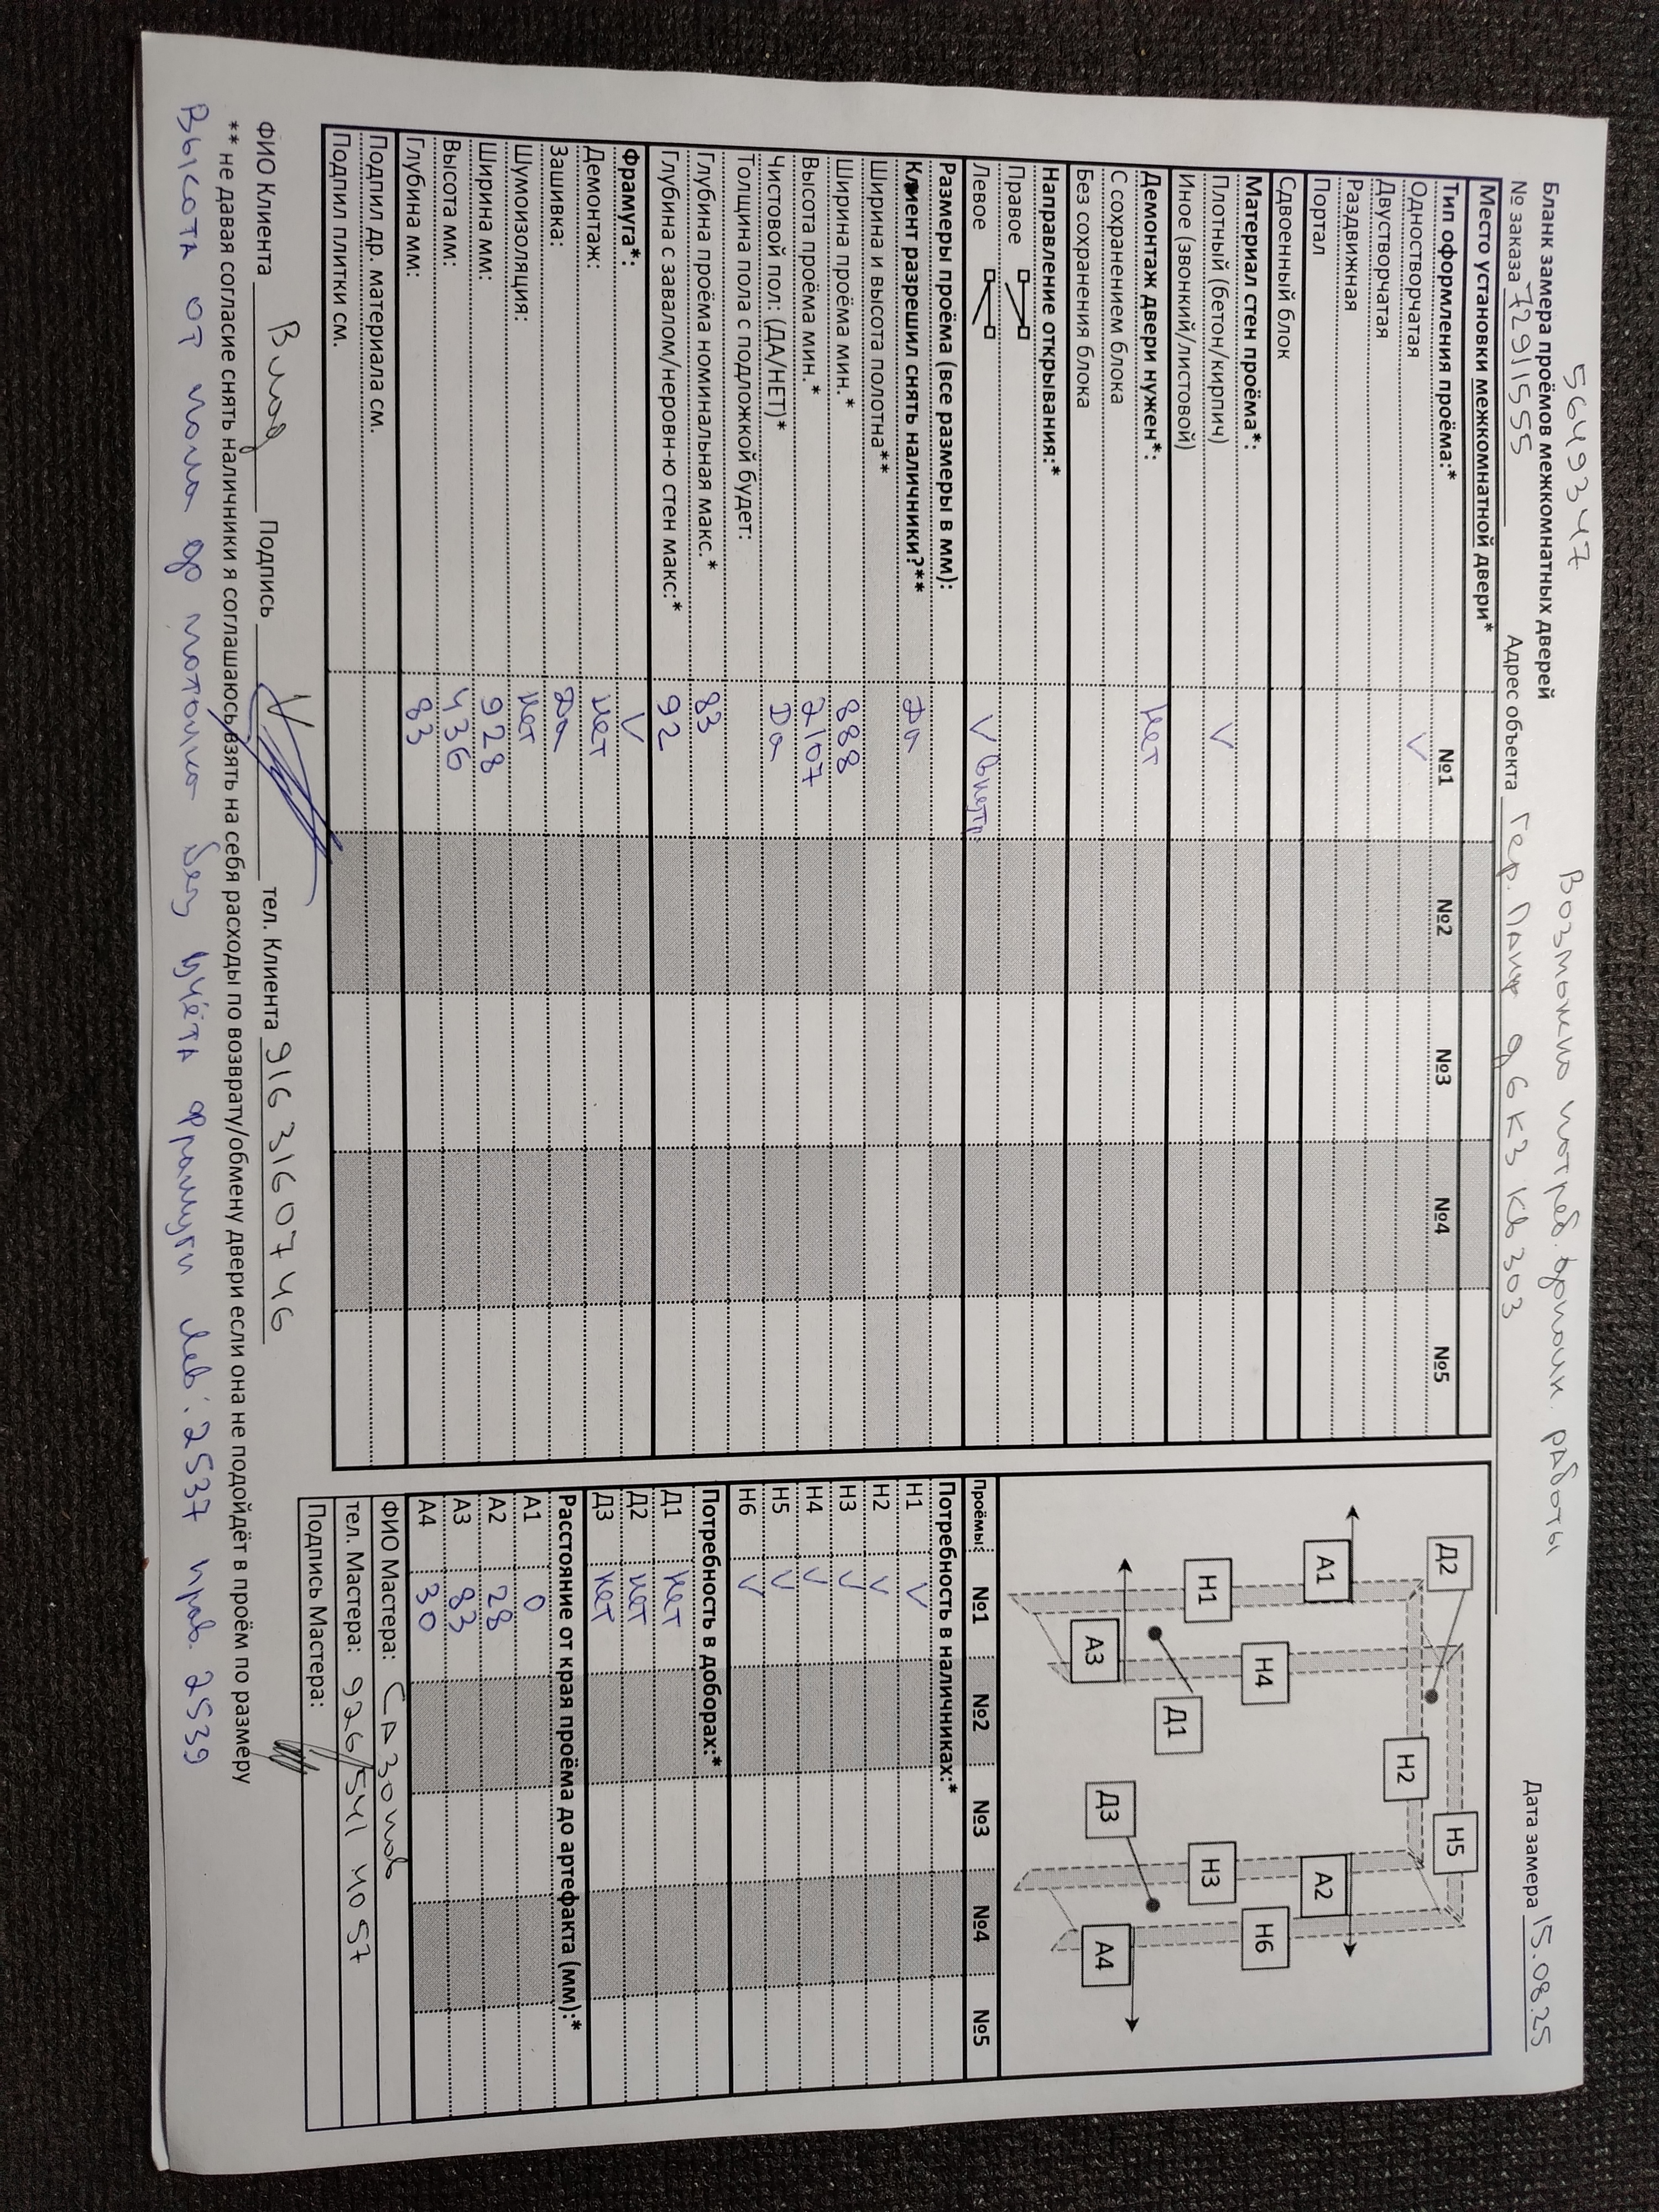 5649347 Возможно потреб. дополн. работы
Бланк замера проёмов межкомнатных дверей
№ заказа 7291555 Адрес объекта Гер. Панф д 6 к3 кв 303 Дата замера 15.08.25
Место установки межкомнатной двери*
Тип оформления проёма:* №1 №2 №3 №4 №5
Одностворчатая V
Двустворчатая
Раздвижная
Портал
Сдвоенный блок
Материал стен проёма*:
Плотный (бетон/кирпич) V
Иное (звонкий/листовой)
Демонтаж двери нужен*: Нет
С сохранением блока
Без сохранения блока
Направление открывания:*
Правое
Левое V внутр.
Размеры проёма (все размеры в мм):
Клиент разрешил снять наличники?** Да
Ширина и высота полотна**
Ширина проёма мин.* 888
Высота проёма мин.* 2107
Чистовой пол: (ДА/НЕТ)* Да
Толщина пола с подложкой будет:
Глубина проёма номинальная макс.* 83
Глубина с завалом/неровн-ю стен макс:* 92
Фрамуга*: V
Демонтаж: нет
Зашивка: Да
Шумоизоляция: Нет
Ширина мм: 928
Высота мм: 436
Глубина мм: 83
Подпил др. материала см.
Подпил плитки см.
Д2 Н5
А1 Н2 А2
Н1 Н4 Н3 Н6
А3 Д1 Д3 А4
Проёмы: №1 №2 №3 №4 №5
Потребность в наличниках:*
Н1 V
Н2 V
Н3 V
Н4 V
Н5 V
Н6 V
Потребность в доборах:*
Д1 Нет
Д2 нет
Д3 нет
Расстояние от края проёма до артефакта (мм):*
А1 0
А2 28
А3 83
А4 30
ФИО Мастера: Сазонов
тел. Мастера: 926/541 40 57
Подпись Мастера:
ФИО Клиента Влад Подпись тел. Клиента 916 316 07 46
** не давая согласие снять наличники я соглашаюсь взять на себя расходы по возврату/обмену двери если она не подойдёт в проём по размеру
Высота от пола до потолка без учёта фрамуги лев: 2537 прав. 2539